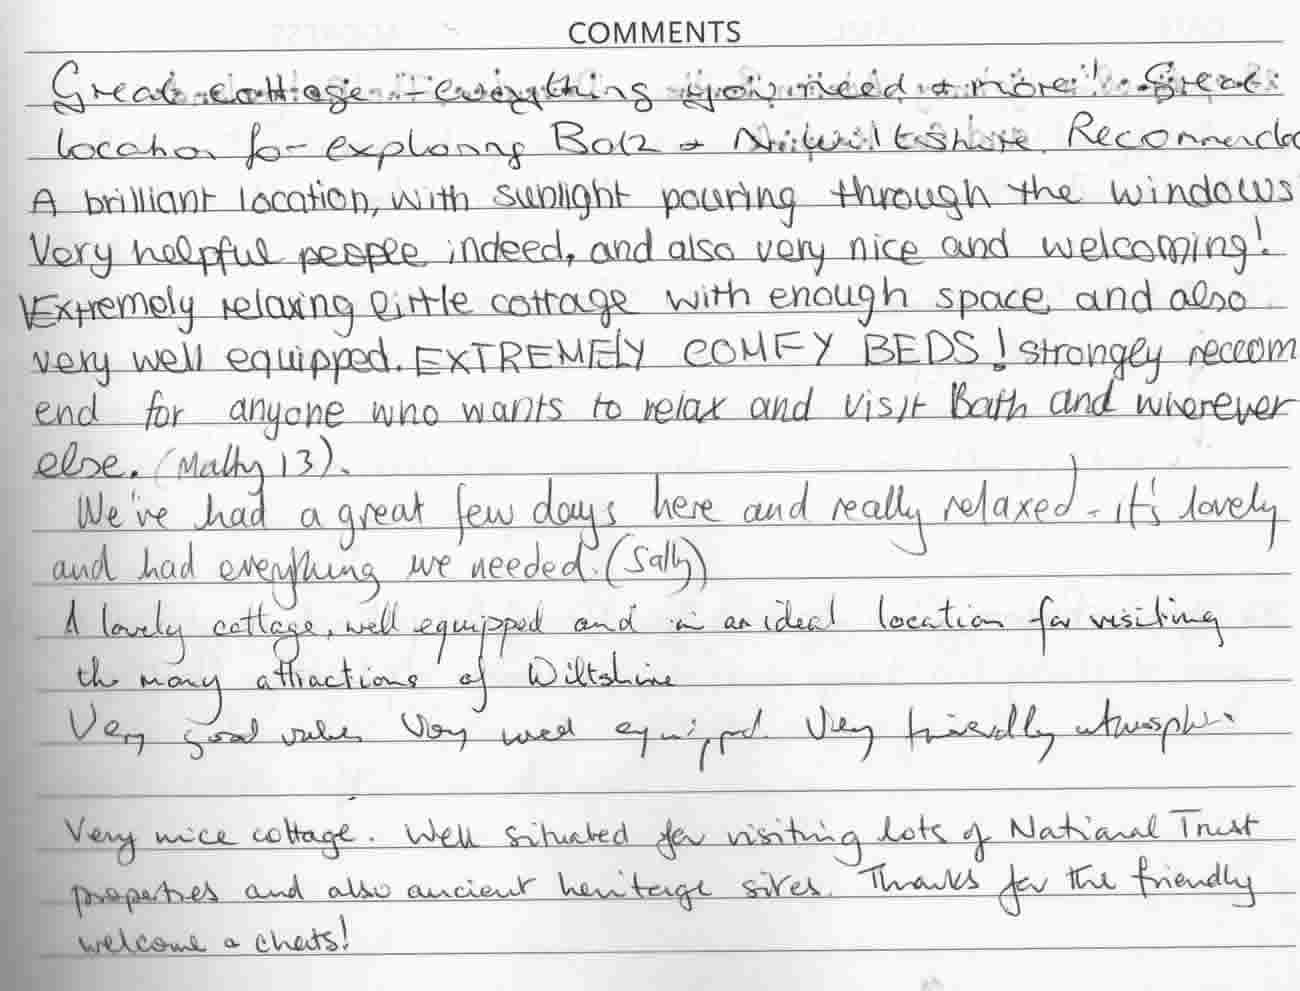 COMMENTS
Great cottage - everything you need + more! Great
location for exploring Bath + N. Wiltshire. Recommended
A brilliant location, with sunlight pouring through the windows
Very helpful people indeed, and also very nice and welcoming!
Extremely relaxing little cottage with enough space and also
very well equipped. EXTREMELY COMFY BEDS! strongly reccom
end for anyone who wants to relax and visit Bath and wherever
else. (Matty 13).
We've had a great few days here and really relaxed - it's lovely
and had everything we needed. (Sally)
A lovely cottage, well equipped and in an ideal location for visiting
the many attractions of Wiltshire
Very good value. Very well equipped. Very friendly atmosphere
Very nice cottage. Well situated for visiting lots of National Trust
properties and also ancient heritage sites. Thanks for the friendly
welcome + chats!